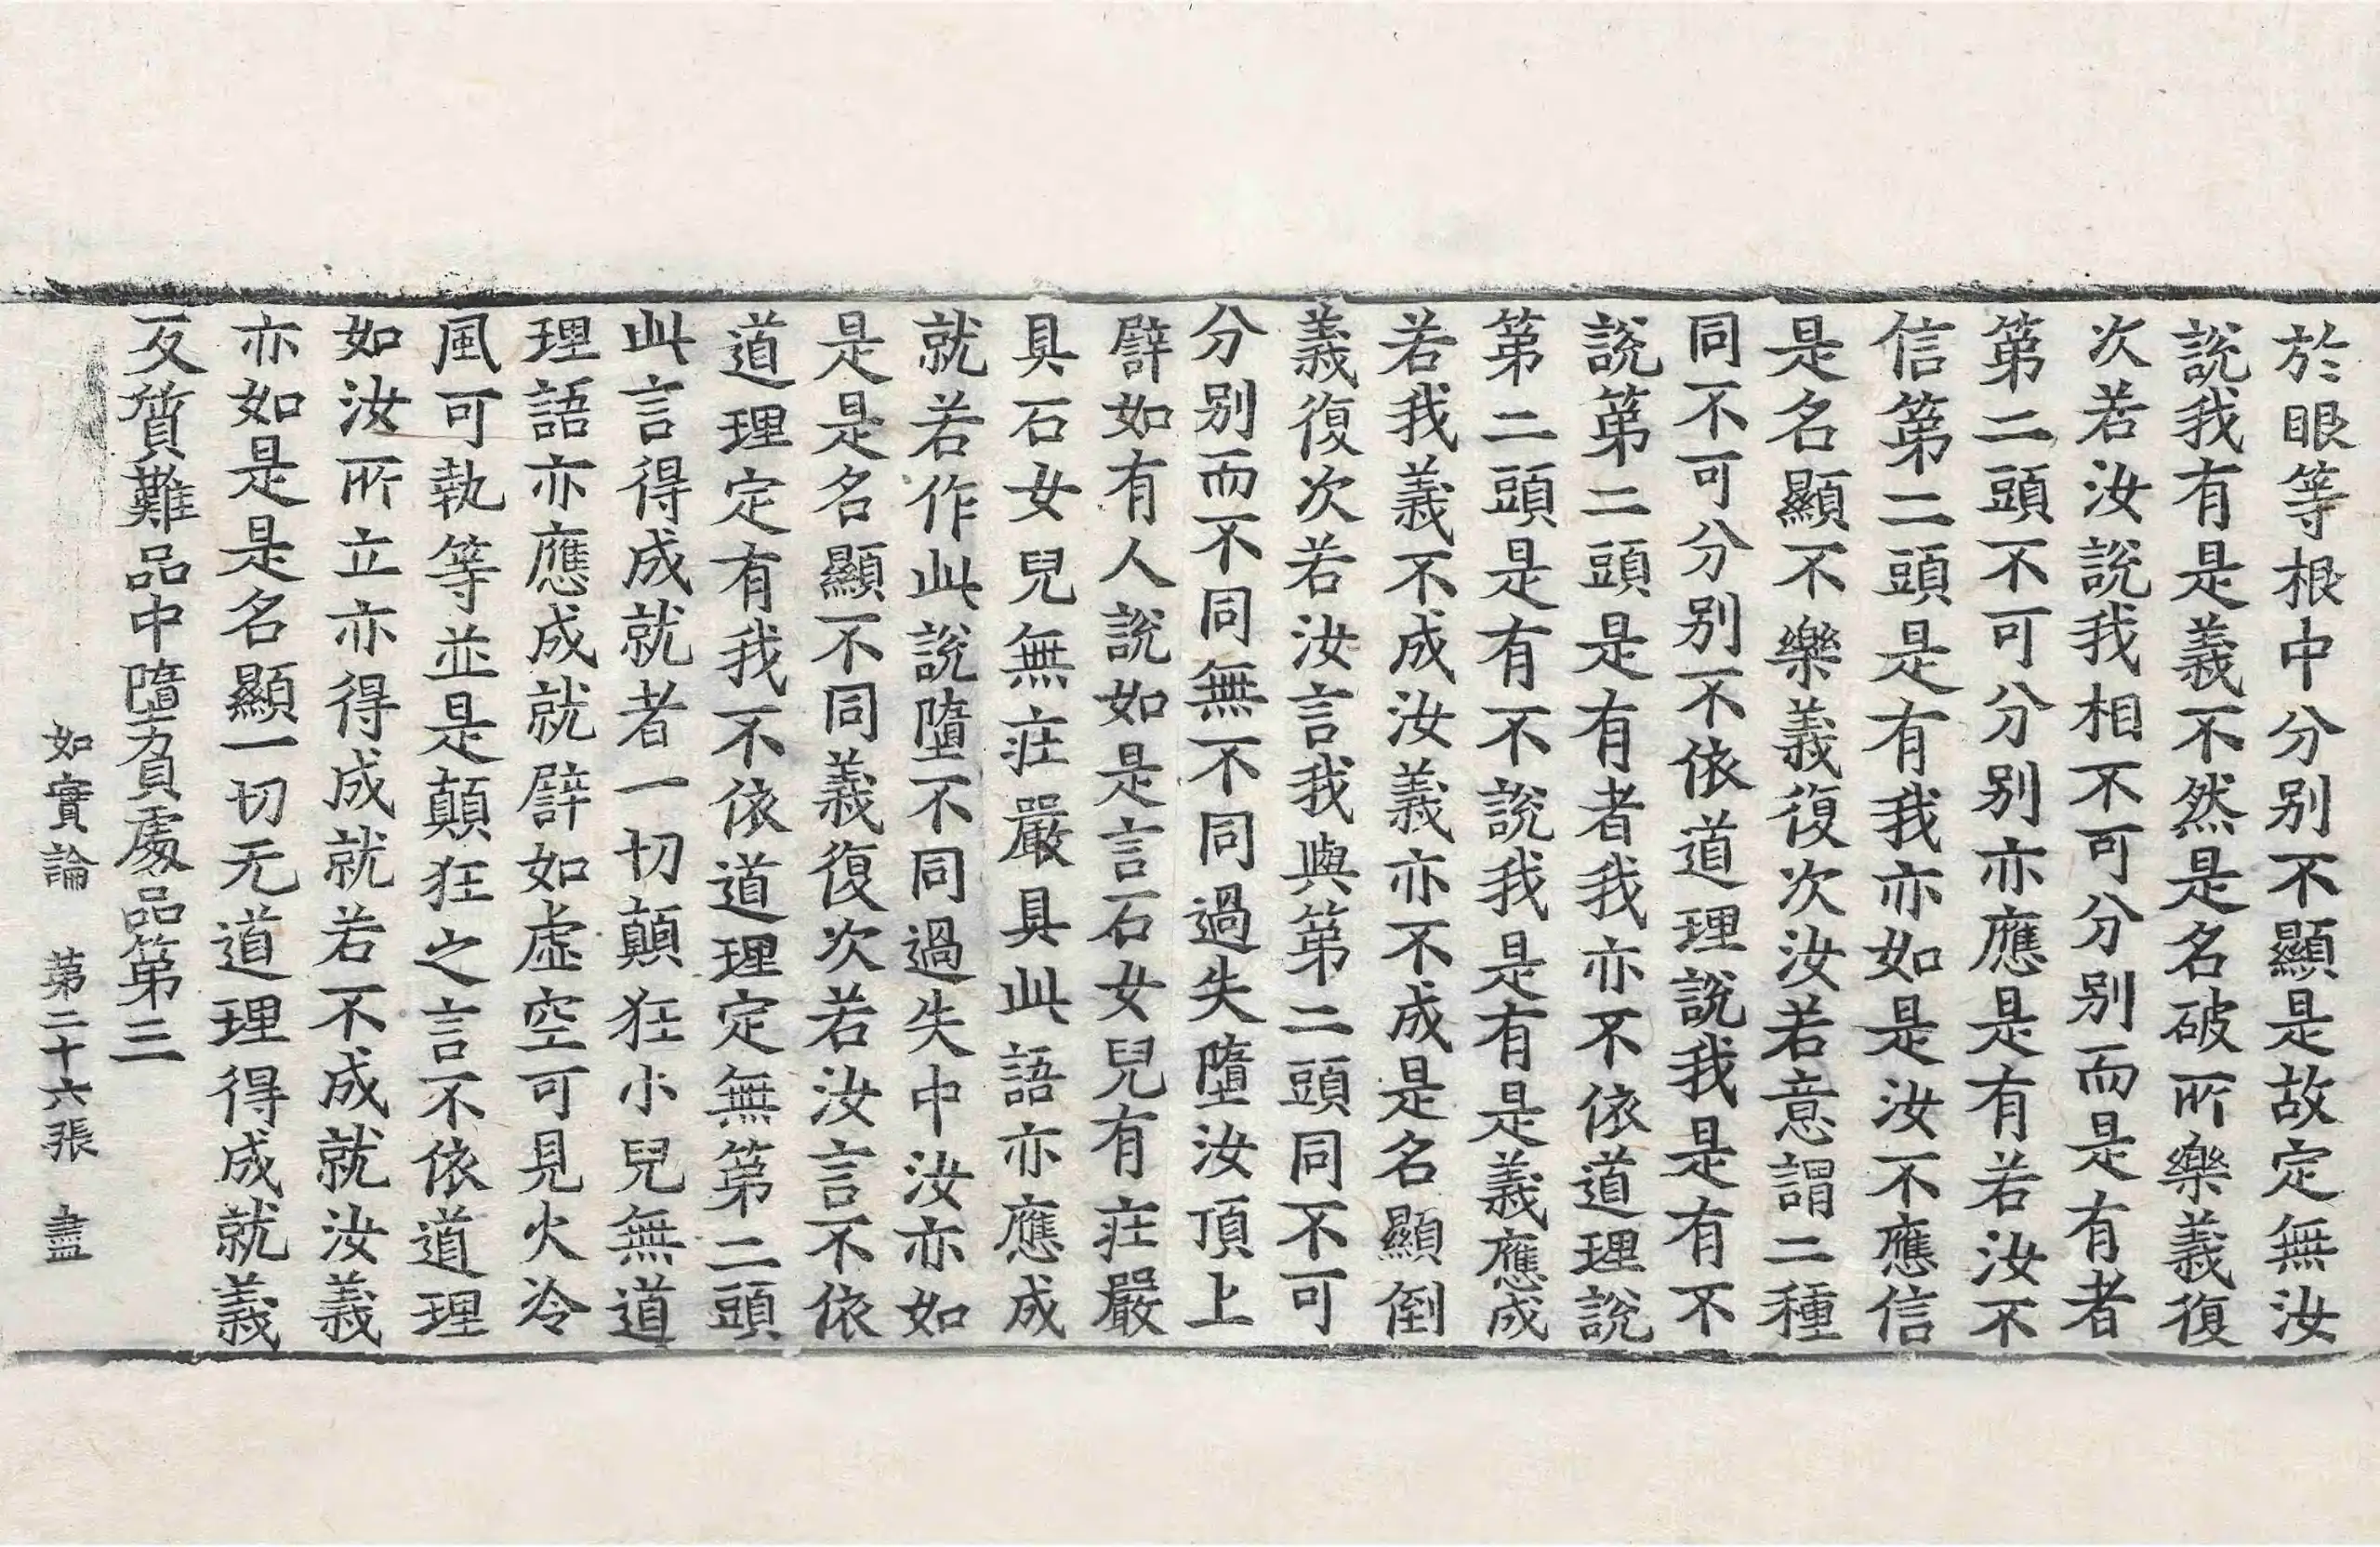 於眼等根中分別不顯是故定無汝
說我有是義不然是名破所樂義復
次若汝說我相不可分別而是有者
第二頭不可分別亦應是有若汝不
信第二頭是有我亦如是汝不應信
是名顯不樂義復次汝若意謂二種
同不可分別不依道理說我是有不
說第二頭是有者我亦不依道理說
第二頭是有不說我是有是義應成
若我義不成汝義亦不成是名顯倒
義復次若汝言我與第二頭同不可
分別而不同無不同過失墮汝頂上
譬如有人說如是言石女兒有莊嚴
具石女兒無莊嚴具此語亦應成
就若作此說墮不同過失中汝亦如
是是名顯不同義復次若汝言不依
道理定有我不依道理定無第二頭
此言得成就者一切顛狂小兒無道
理語亦應成就譬如虛空可見火冷
風可執等並是顛狂之言不依道理
如汝所立亦得成就若不成就汝義
亦如是是名顯一切无道理得成就義
反質難品中墮負處品第三
如實論 第二十六張 盡